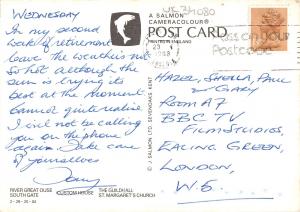 UK 34080
WEDNESDAY
In my second
week of retirement
leave the weather is not
So hot although the
sun is trying its
best at the moment.
Cannot quite realise
I will not be calling
you on the phone
again. Take care
of yourselves
Tony
A SALMON
CAMERACOLOUR®
POST CARD
PRINTED IN ENGLAND
© J SALMON LTD. SEVENOAKS. KENT
HAZEL, SHEILA, PAUL
and GARY
ROOM A7
BBC TV
FILM STUDIOS,
EALING GREEN,
LONDON,
W.5.
RIVER GREAT OUSE
SOUTH GATE
CUSTOM HOUSE
THE GUILDHALL
ST. MARGARET'S CHURCH
2-29-20-04